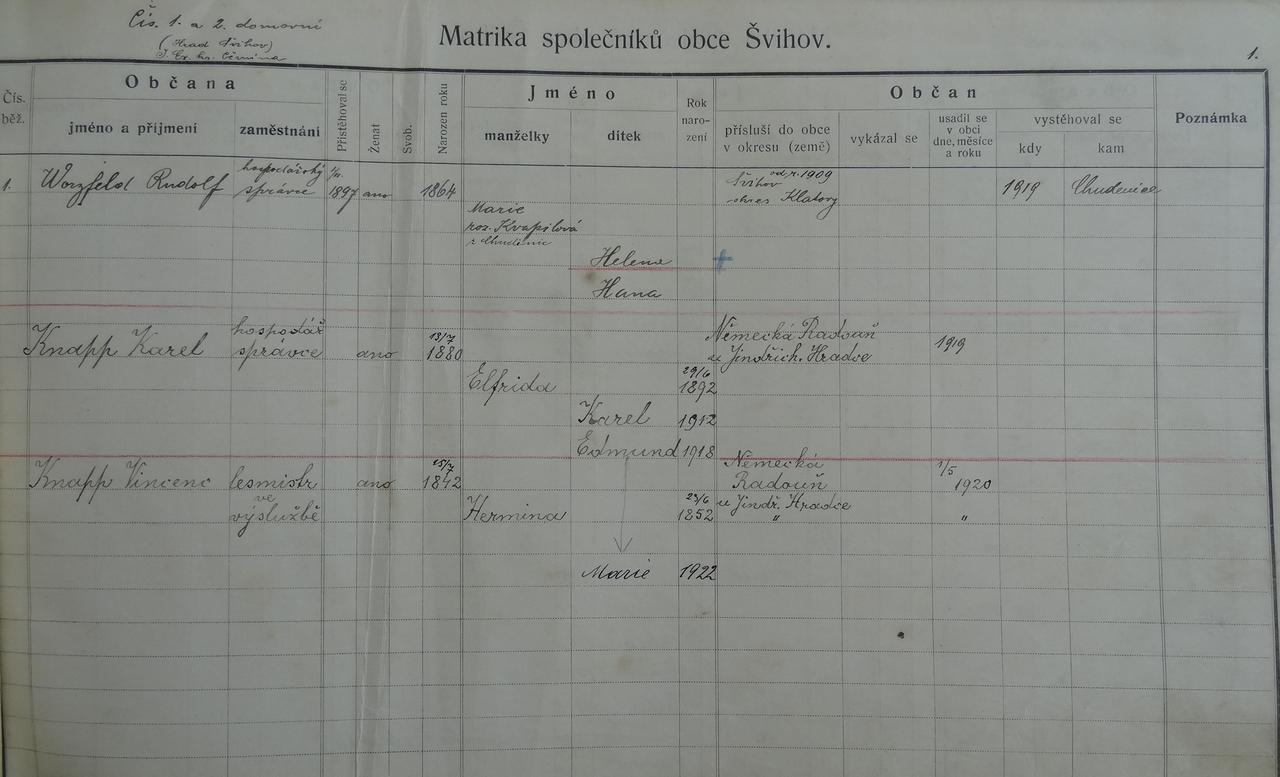 Čís. 1. a 2. domovní
(Hrad Švihov)
Matrika společníků obce Švihov.
1.
Čís. běž.
Občana
jméno a příjmení
zaměstnání
Přistěhoval se
Ženat
Svob.
Narozen roku
Jméno
manželky
dítek
Rok naro- zení
Občan
přísluší do obce
v okresu (země)
vykázal se
usadil se
v obci
dne, měsíce
a roku
vystěhoval se
kdy
kam
Poznámka
1. Worzfeld Rudolf hospodářský správce 1897 ano 1864 Švihov od r. 1909 okres Klatovy 1919 Chudenice
Marie
roz. Kvapilová
z Chudenic
Helena +
Hana
Knapp Karel hospodář správce ano 13/7 1880 Německá Radouň u Jindřich. Hradce 1919
Elfrida 29/6 1892
Karel 1912
Edmund 1918
Knapp Vincenc lesmistr ve výslužbě ano 15/7 1842 Německá Radouň u Jindř. Hradce 1/5 1920
Hermina 23/6 1852 " "
Marie 1922